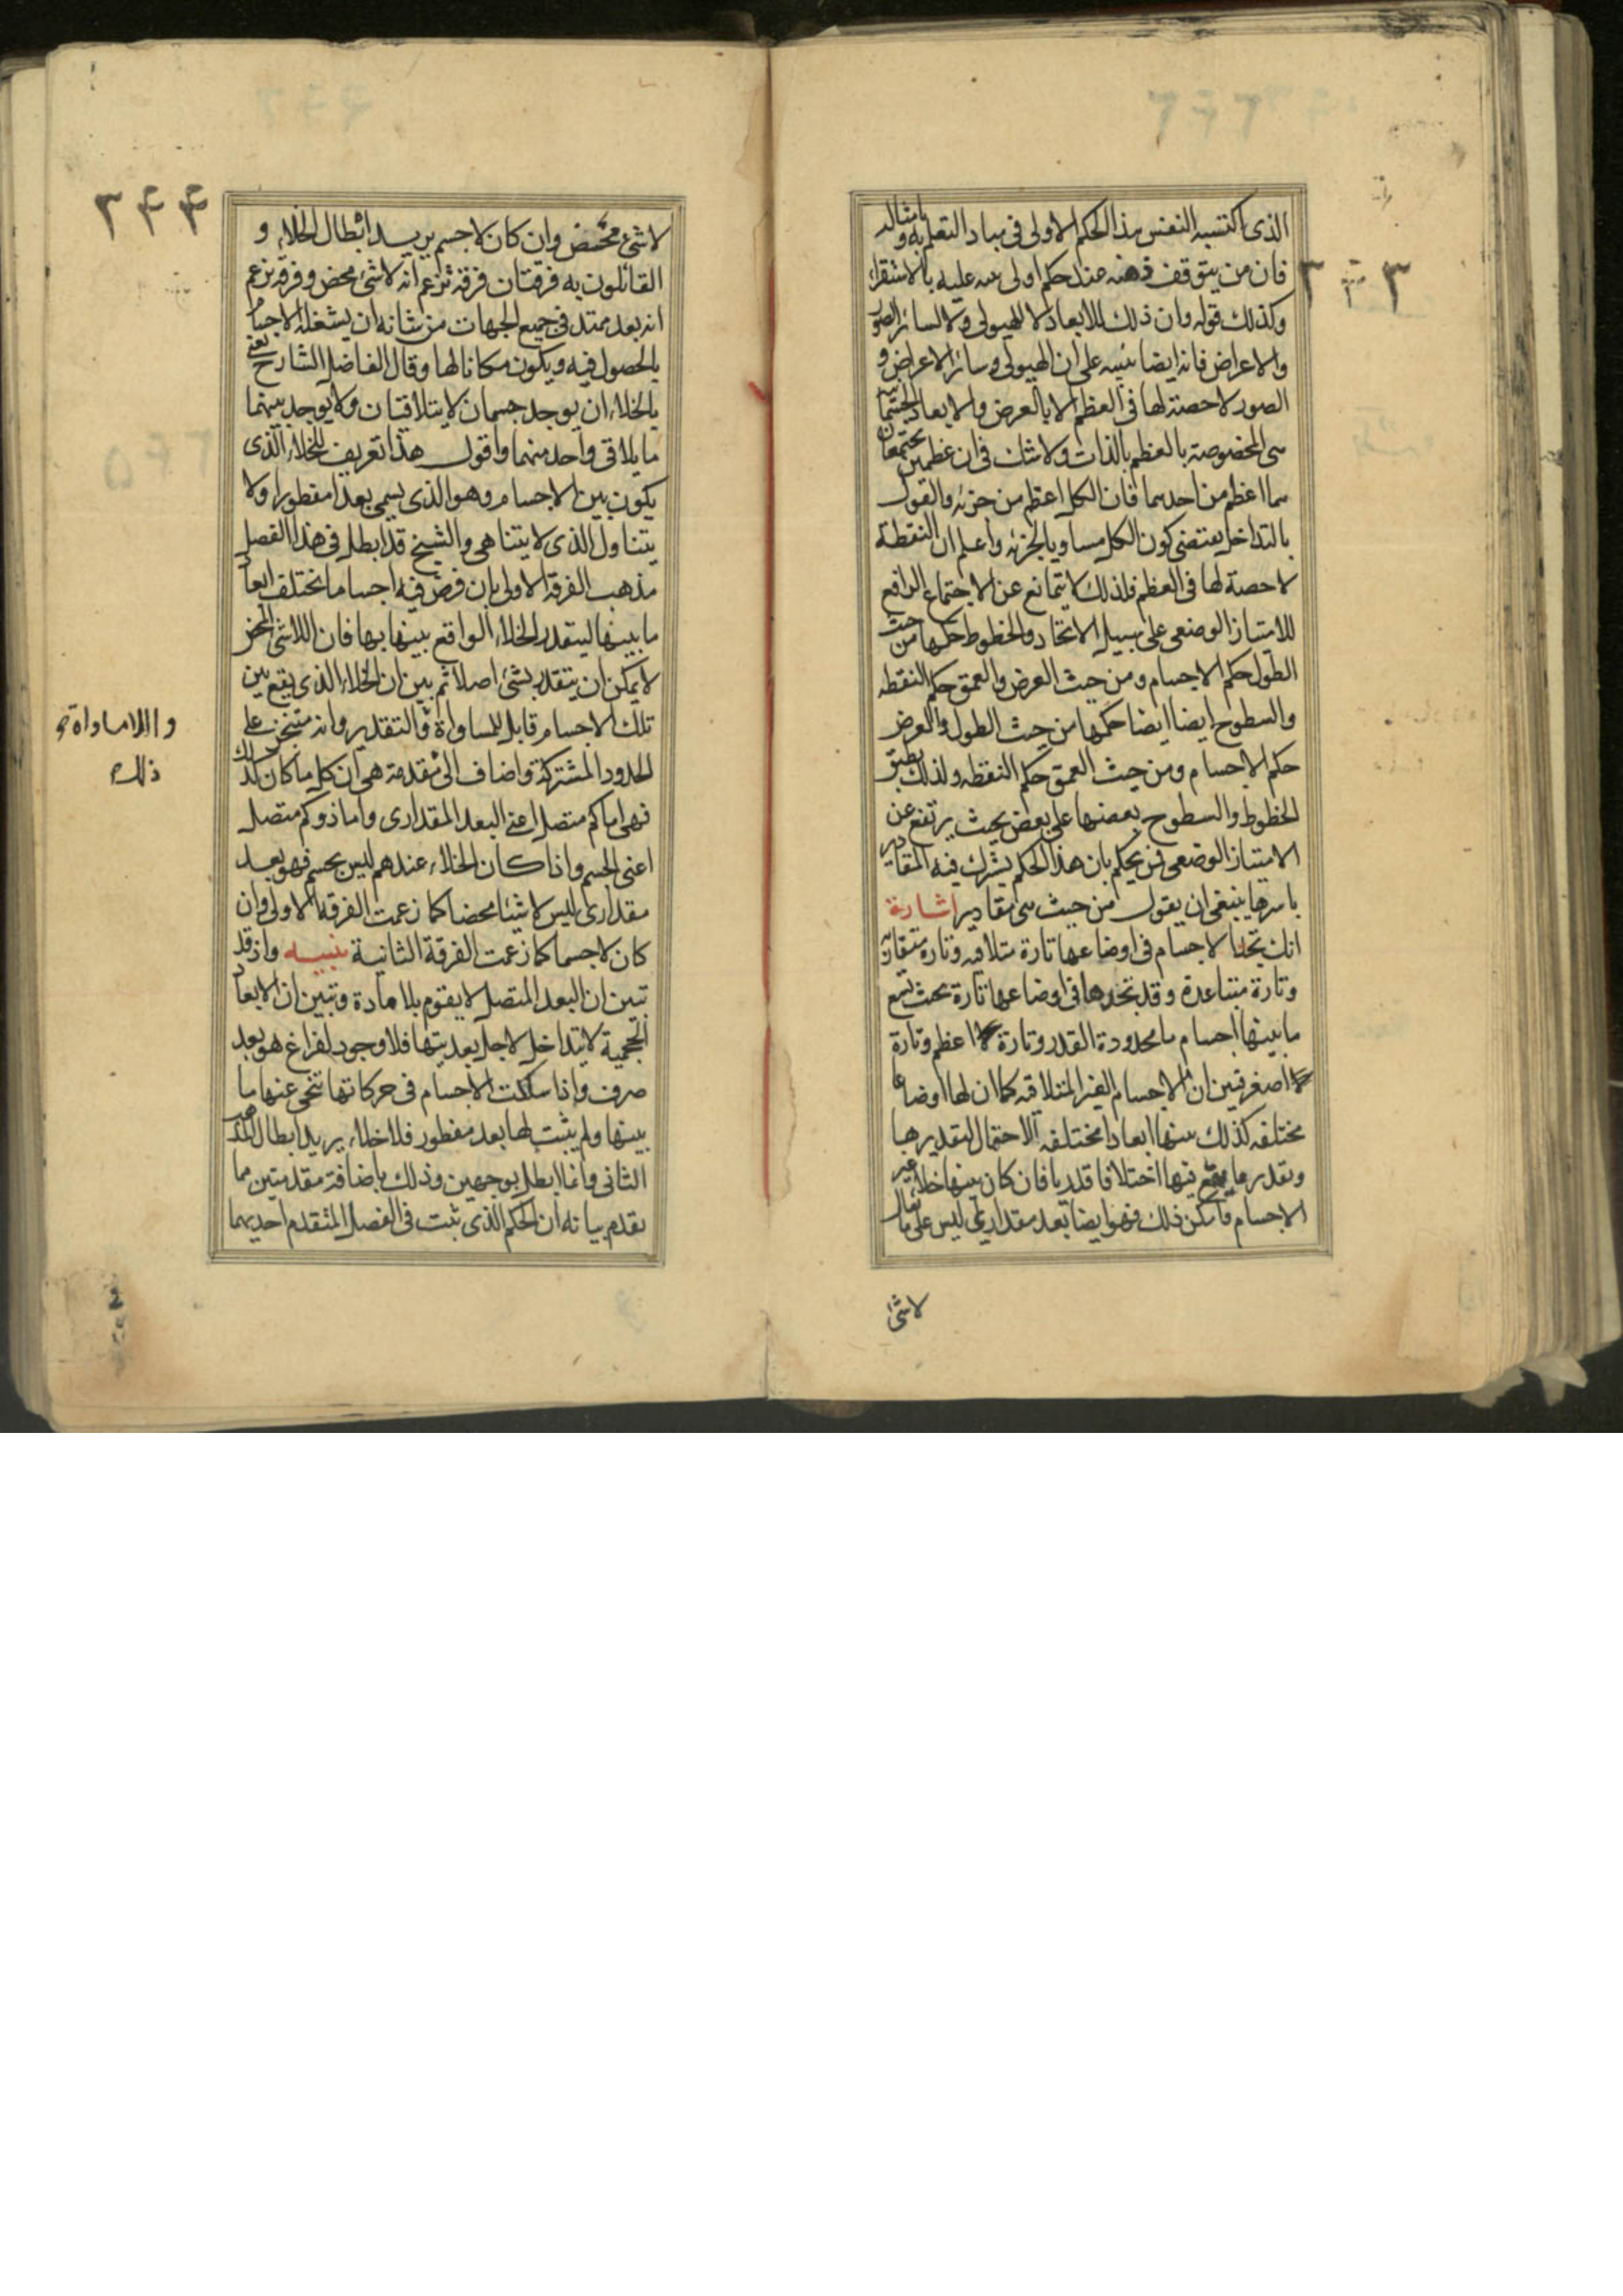 الذى اكتسبه النفس هذا الحكم الاولى فى مباد التعلم به و بامثاله
فان من يتوقف ذهنه عند حكم اولى ينبه عليه بالاستقراء
وكذلك قوله وان ذلك للابعاد لا للهيولى ولا لسائر الصور
والاعراض فانه ايضا تنبيه على ان الهيولى وسائر الاعراض و
الصور لا حصة لها فى العظم الا بالعرض والابعاد الجسمانية
هى المخصوصة بالعظم بالذات ولا شك فى ان عظمين يجتمعان
هما اعظم من احدهما فان الكل اعظم من جزئه والقول
بالتداخل يقتضى كون الكل مساويا لجزئه واعلم ان النقطة
لا حصة لها فى العظم فلذلك لا يتمانع عن الاجتماع الرافع
للامتياز الوضعى على سبيل الاتحاد والخطوط حكمها من حيث
الطول حكم الاجسام ومن حيث العرض والعمق حكم النقطه
والسطوح ايضا ايضا حكمها من حيث الطول والعرض
حكم الاجسام ومن حيث العمق حكم النقطه ولذلك ينطبق
الخطوط والسطوح بعضها على بعض بحيث يرتفع عن
الامتياز الوضعى فمن يحكم بان هذا الحكم يشترك فيه المقادير
باسرها ينبغى ان يقول من حيث هى مقادير اشارة
انك تجد الاجسام فى اوضاعها تارة متلاقيه وتارة متقاربة
وتارة متباعدة وقد تجدها فى اوضاعها تارة بحيث تسع
ما بينها اجسام ما محدودة القدر وتارة اعظم وتارة
اصغر فتبين ان الاجسام الغير المتلاقيه كما ان لها اوضاعا
مختلفه كذلك بينها ابعاد مختلفه الاحتمال لتقديرها
وتقدير ما يقع فيها اختلافا قدريا فان كان بينها خلاء غير
الاجسام وامكن ذلك فهو ايضا بعد مقدارى ليس على ما يقال
لا شئ
٣٤٤
لا شئ محض وان كان لا جسم يريد ابطال الخلاء و
القائلون به فرقتان فرقة تزعم انه لا شئ محض وفرقة تزعم
انه بعد ممتد فى جميع الجهات من شانه ان يشغله الاجسام
بالحصول فيه ويكون مكانا لها وقال الفاضل الشارح نعنى
بالخلاء ان يوجد جسمان لا يتلاقيان ولا يوجد بينهما
ما يلاقى واحد منهما واقول هذا تعريف للخلاء الذى
يكون بين الاجسام وهو الذى يسمى بعدا مفطورا ولا
يتناول الذى لا يتناهى والشيخ قد ابطل فى هذا الفصل
مذهب الفرقة الاولى بان فرض فيه اجساما تختلف ابعاد
ما بينها ليتقدر الخلاء الواقع بينها بها فان اللاشئ المحض
لا يمكن ان يتقدر بشئ اصلا ثم بين ان الخلاء الذى يقع بين
تلك الاجسام قابل للمساواة والتقدير وانه متجزء على
الحدود المشتركة واضاف الى مقدمة هى ان كل ما كان كذلك
فهى اما كم متصل اعنى البعد المقدارى واما ذو كم متصل
اعنى الجسم واذا كان الخلاء عندهم ليس بجسم فهو بعد
مقدارى ليس لا شيئا محضا كما زعمت الفرقة الاولى وان
كان لا جسما كما زعمت الفرقة الثانية تنبيه واذ قد
تبين ان البعد المتصل لا يقوم بلا مادة وتبين ان الابعاد
الحجمية لا تتداخل لاجل بعديتها فلا وجود لفراغ هو بعد
صرف واذا سلكت الاجسام فى حركاتها تنحى عنها ما
بينها ولم يثبت لها بعد مفطور فلا خلاء يريد ابطال المذهب
الثانى وانما ابطل بوجهين وذلك باضافة مقدمتين مما
تقدم بيانه ان الحكم الذى ثبت فى الفصل المتقدم احديهما
واللامساواة و
ذلك